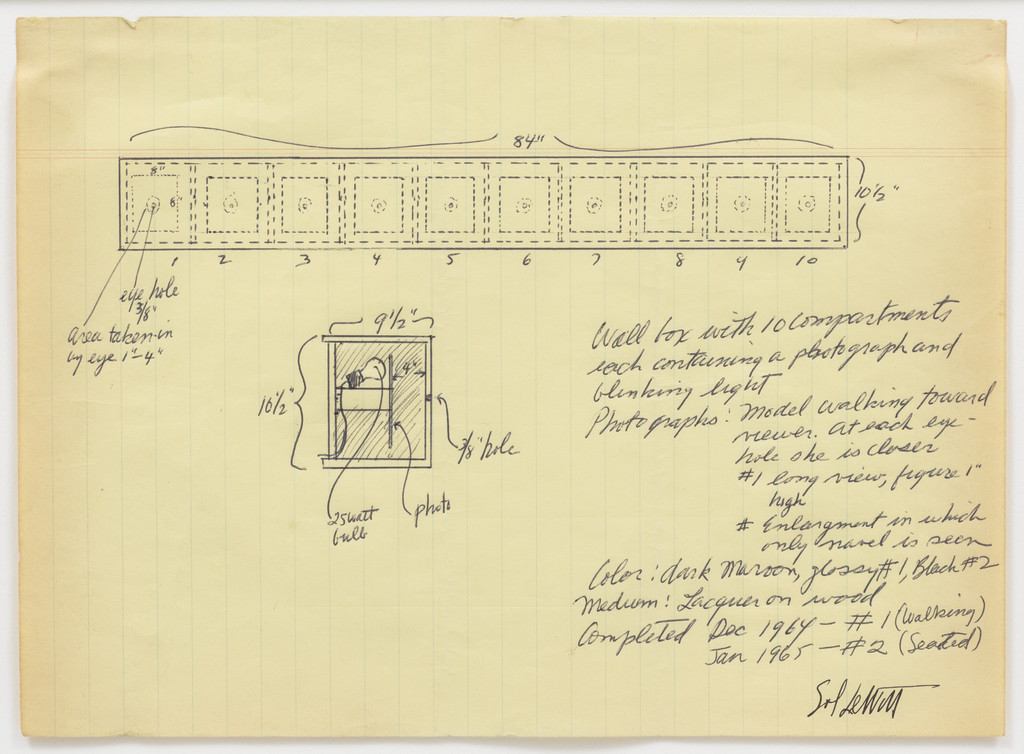 84"
8"
6"
10 1/2"
1 2 3 4 5 6 7 8 9 10
eye hole
3/8"
area taken in
by eye 1"-4"
9 1/2"
10 1/2"
4"
3/8" hole
25 watt
bulb
photo
Wall box with 10 compartments
each containing a photograph and
blinking light
Photographs: Model walking toward
viewer. At each eye-
hole she is closer
#1 long view, figure 1"
high
# Enlargment in which
only navel is seen
Color: dark Maroon, glossy #1, Black #2
Medium: Lacquer on wood
Completed Dec 1964 - #1 (Walking)
Jan 1965 - #2 (Seated)
Sol LeWitt